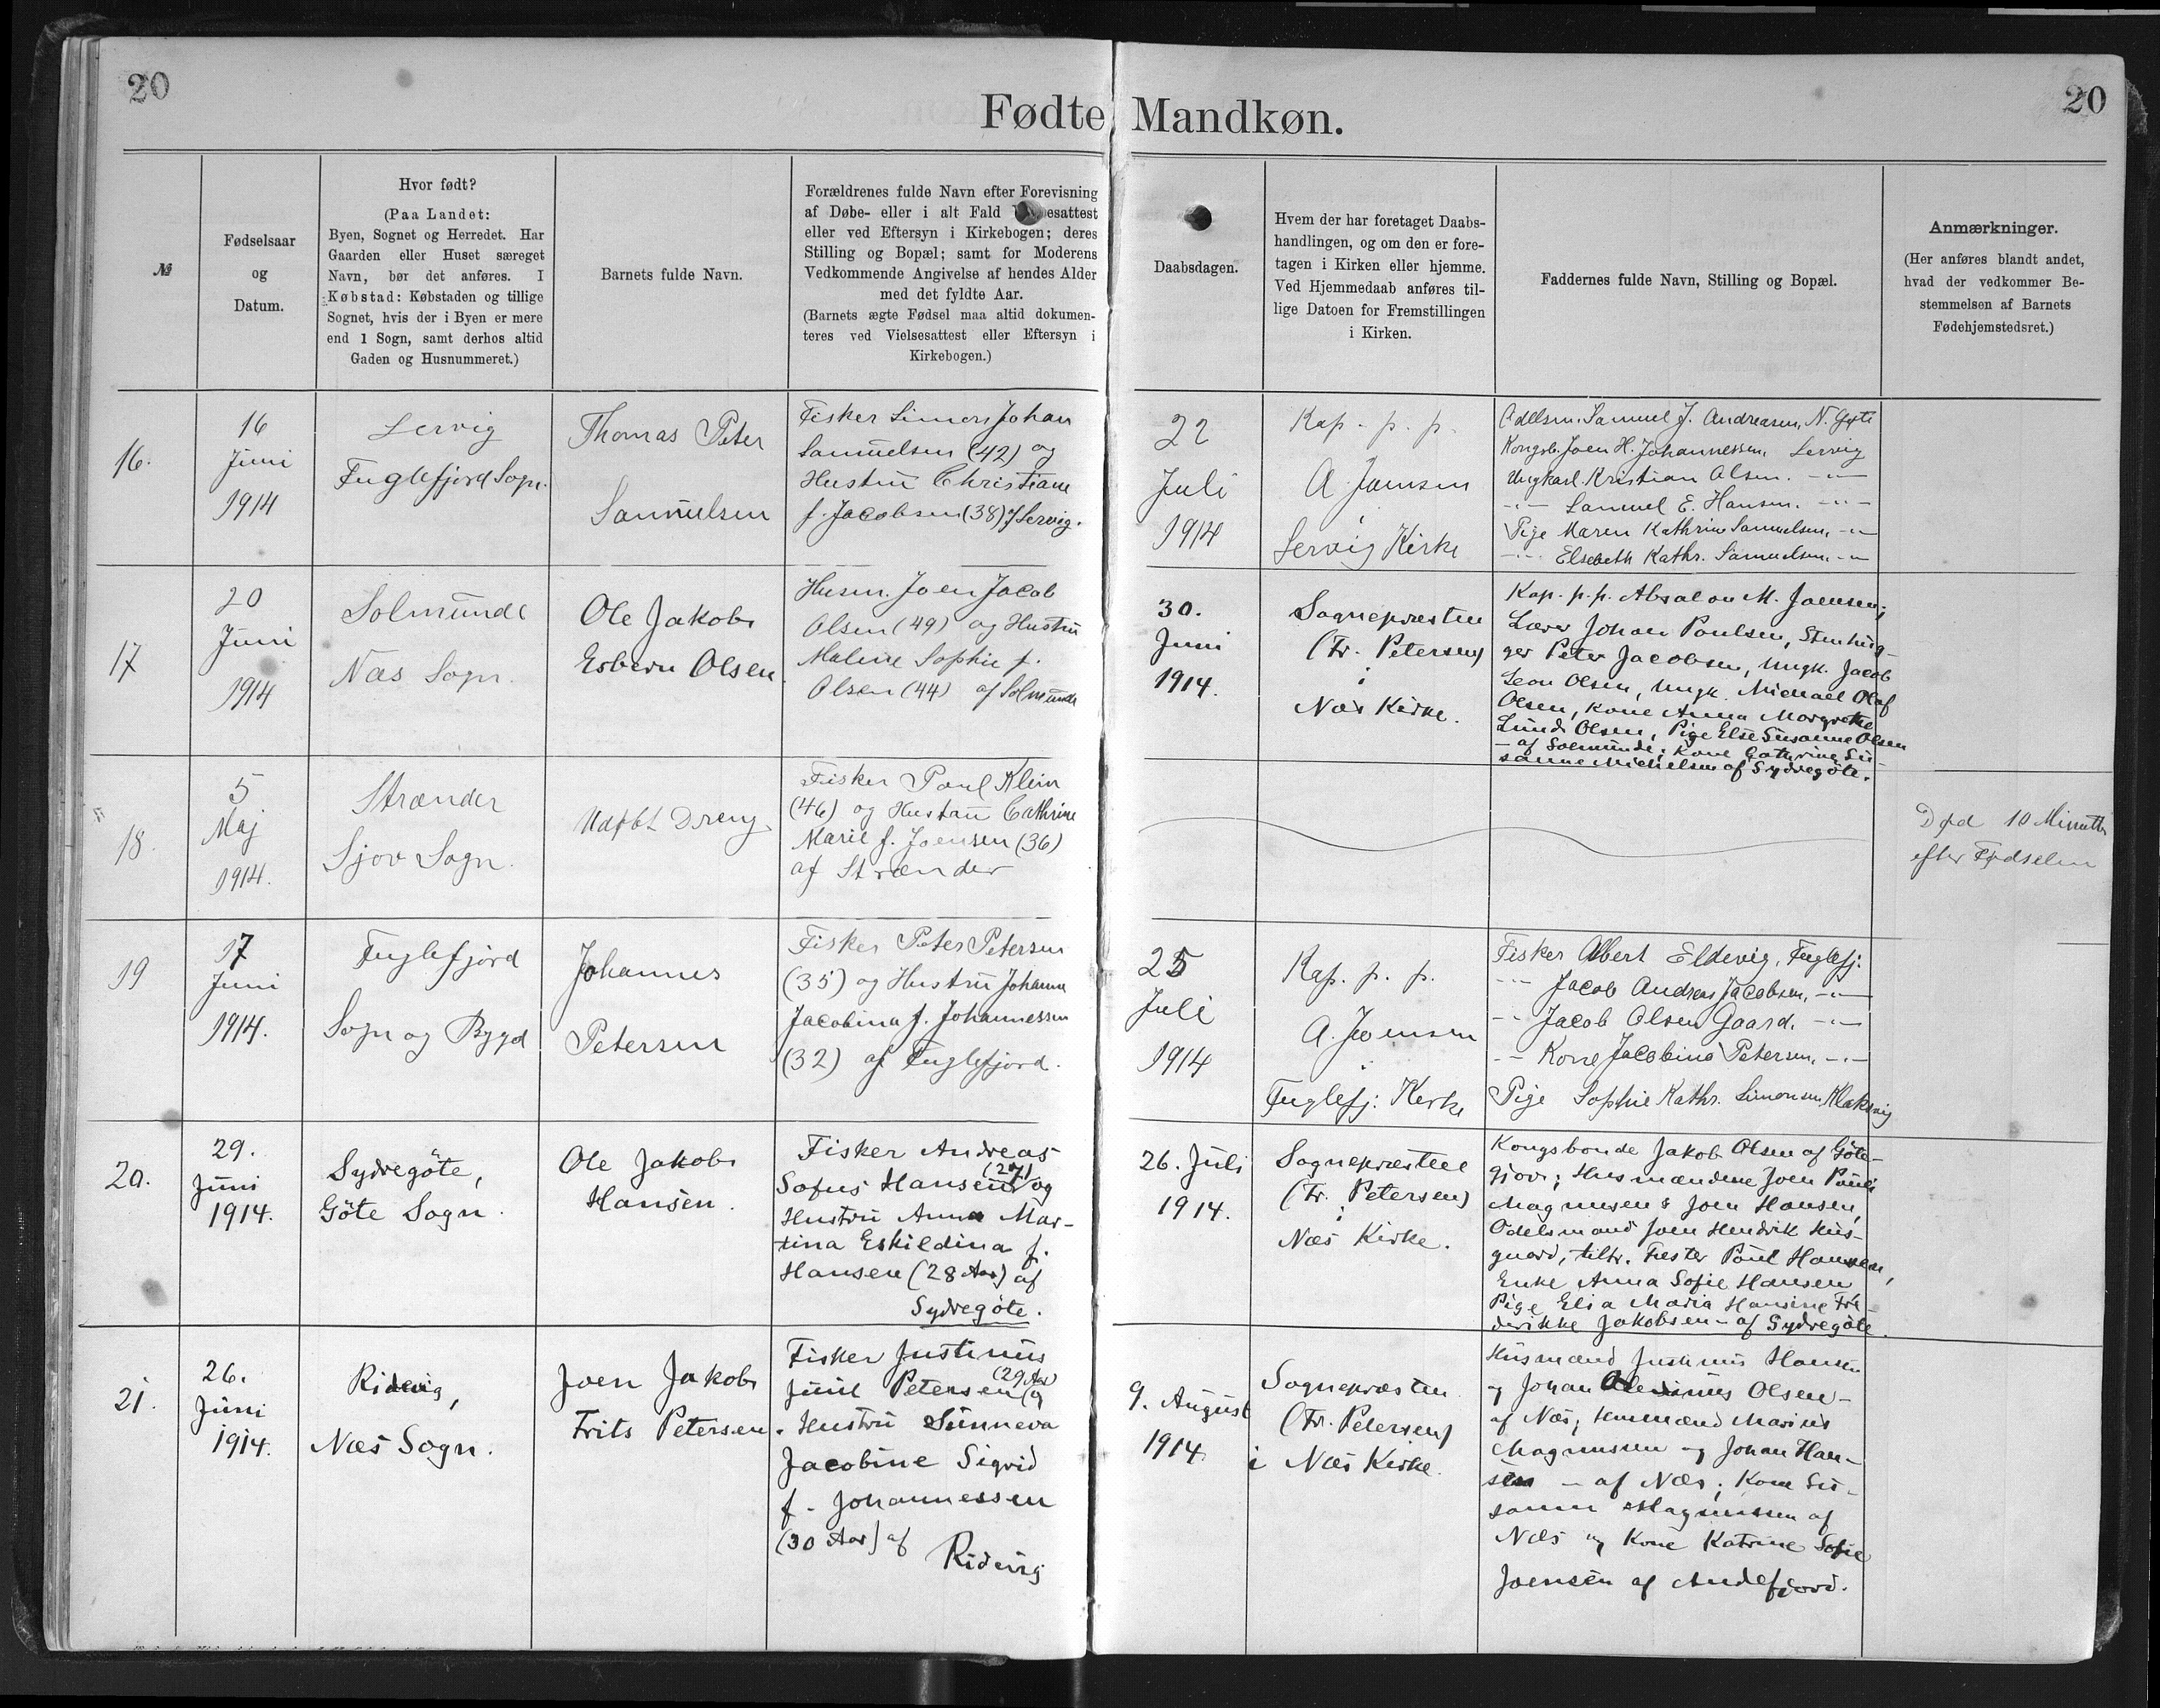 20
20
Fødte Mandkøn.
№
Fødselsaar
og
Datum.
Hvor født?
(Paa Landet:
Byen, Sognet og Herredet. Har
Gaarden eller Huset særeget
Navn, bør det anføres. I
Købstad: Købstaden og tillige
Sognet, hvis der i Byen er mere
end 1 Sogn, samt derhos altid
Gaden og Husnummeret.)
Barnets fulde Navn.
Forældrenes fulde Navn efter Forevisning
af Døbe- eller i alt Fald
eller ved Eftersyn i Kirkebogen; deres
Stilling og Bopæl; samt for Moderens
Vedkommende Angivelse af hendes Alder
med det fyldte Aar.
(Barnets ægte Fødsel maa altid dokumen-
teres ved Vielsesattest eller Eftersyn i
Kirkebogen.)
Daabsdagen.
Hvem der har foretaget Daabs-
handlingen, og om den er fore-
tagen i Kirken eller hjemme.
Ved Hjemmedaab anføres til-
lige Datoen for Fremstillingen
i Kirken.
Faddernes fulde Navn, Stilling og Bopæl.
Anmærkninger.
(Her anføres blandt andet,
hvad der vedkommer Be-
stemmelsen af Barnets
Fødehjemstedsret.)
16.
16
Juni
1914
Lervig
Fuglefjord Sogn.
Thomas Peter
Samuelsen
Fisker Simon Johan
Samuelsen (42) og
Hustru Christiane
f. Jacobsen (38) af Lervig.
22
Juli
1914
Kap. p. p.
A. Joensen
i
Lervig Kirke
Odelsm. Samuel J. Andreasen, N. Gøte
Kongsb. Joen H. Johannessen, Lervig
Ungkarl Kristian Olsen. -"-
-"- Samuel E. Hansen. -"-
Pige Maren Kathrine Samuelsen, -"-
-"- Elsebeth Kathr. Samuelsen, -"-
17
20
Juni
1914
Solmunde
Næs Sogn.
Ole Jakob
Esbern Olsen
Husm. Joen Jacob
Olsen (49) og Hustru
Malene Sophie f.
Olsen (44) af Solmunde
30.
Juni
1914.
Sognepræsten
(Fr. Petersen)
i
Næs Kirke.
Kap. p. p. Absalon M. Joensen;
Lærer Johan Poulsen, Stenhug-
ger Peter Jacobsen, Ungk. Jacob
Leon Olsen, Ungk. Michael Olaf
Olsen, Kone Anna Margrethe
Lund Olsen, Pige Else Susanne Olsen
- af Solmunde; Kone Cathrine Su-
sanne Michelsen af Sydregøte.
18.
5
Maj
1914.
Strænder
Sjov Sogn.
Udøbt Dreng
Fisker Poul Klein
(46) og Hustru Cathrine
Marie f. Joensen (36)
af Strænder
Død 10 Minutter
efter Fødselen
19
17
Juni
1914.
Fuglefjord
Sogn og Bygd
Johannes
Petersen
Fisker Peter Petersen
(35) og Hustru Johanne
Jacobina f. Johannessen
(32) af Fuglefjord.
25
Juli
1914
Kap. p. p.
A. Joensen
i
Fuglefj: Kirke
Fisker Albert Eldevig, Fuglefj:
-"- Jacob Andreas Jacobsen, -"-
-"- Jacob Olsen Gaard, -"-
-"- Kone Jacobina Petersen, -"-
Pige Sophie Kathr. Simonsen, Klaksvig
20.
29.
Juni
1914.
Sydregöte,
Göte Sogn.
Ole Jakob
Hansen.
Fisker Andreas
Sofus Hansen (27) og
Hustru Anna Mar-
tina Eskildina f.
Hansen (28 Aar) af
Sydregöte.
26. Juli
1914.
Sognepræsten
(Fr. Petersen)
i
Næs Kirke.
Kongsbonde Jakob Olsen af Göte-
gjov; Husmændene Joen Pauli
Magnusen & Joen Hansen,
Odelsmand Joen Hendrik Hus-
gaard, tiltr. Fæster Poul Hansen,
Enke Anna Sofie Hansen
Pige Elsa Maria Hansine Fre-
derikke Jakobsen - af Sydregöte.
21.
26.
Juni
1914.
Ridevig,
Næs Sogn.
Joen Jakob
Frits Petersen.
Fisker Justinus
Juul Petersen (29 Aar) og
Hustru Sunneva
Jacobine Sigrid
f. Johannessen
(30 Aar) af
Ridevig
9. August
1914.
Sognepræsten
(Fr. Petersen)
i Næs Kirke.
Husmænd Justinus Hansen
og Johan Olsen-
af Næs; Husmænd Marius
Magnussen og Johan Han-
sen - af Næs; Kone Su-
sanne Magnussen af
Næs og Kone Katrine Sofie
Joensen af Andefjord.